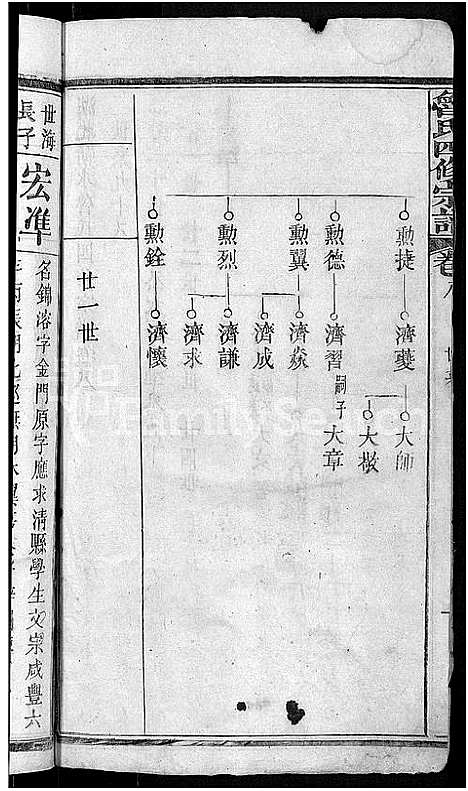 曾氏四修宗譜
卷八
勲捷 濟夔 大師
大椒
勲德 濟習 嗣子 大章
勲翼 濟焱
濟成
勲烈 濟謙
濟求
勲銓 濟懷
廿一世
世海
長子 宏準
名錦溶字金門原字應求清縣學生文宗咸豐六